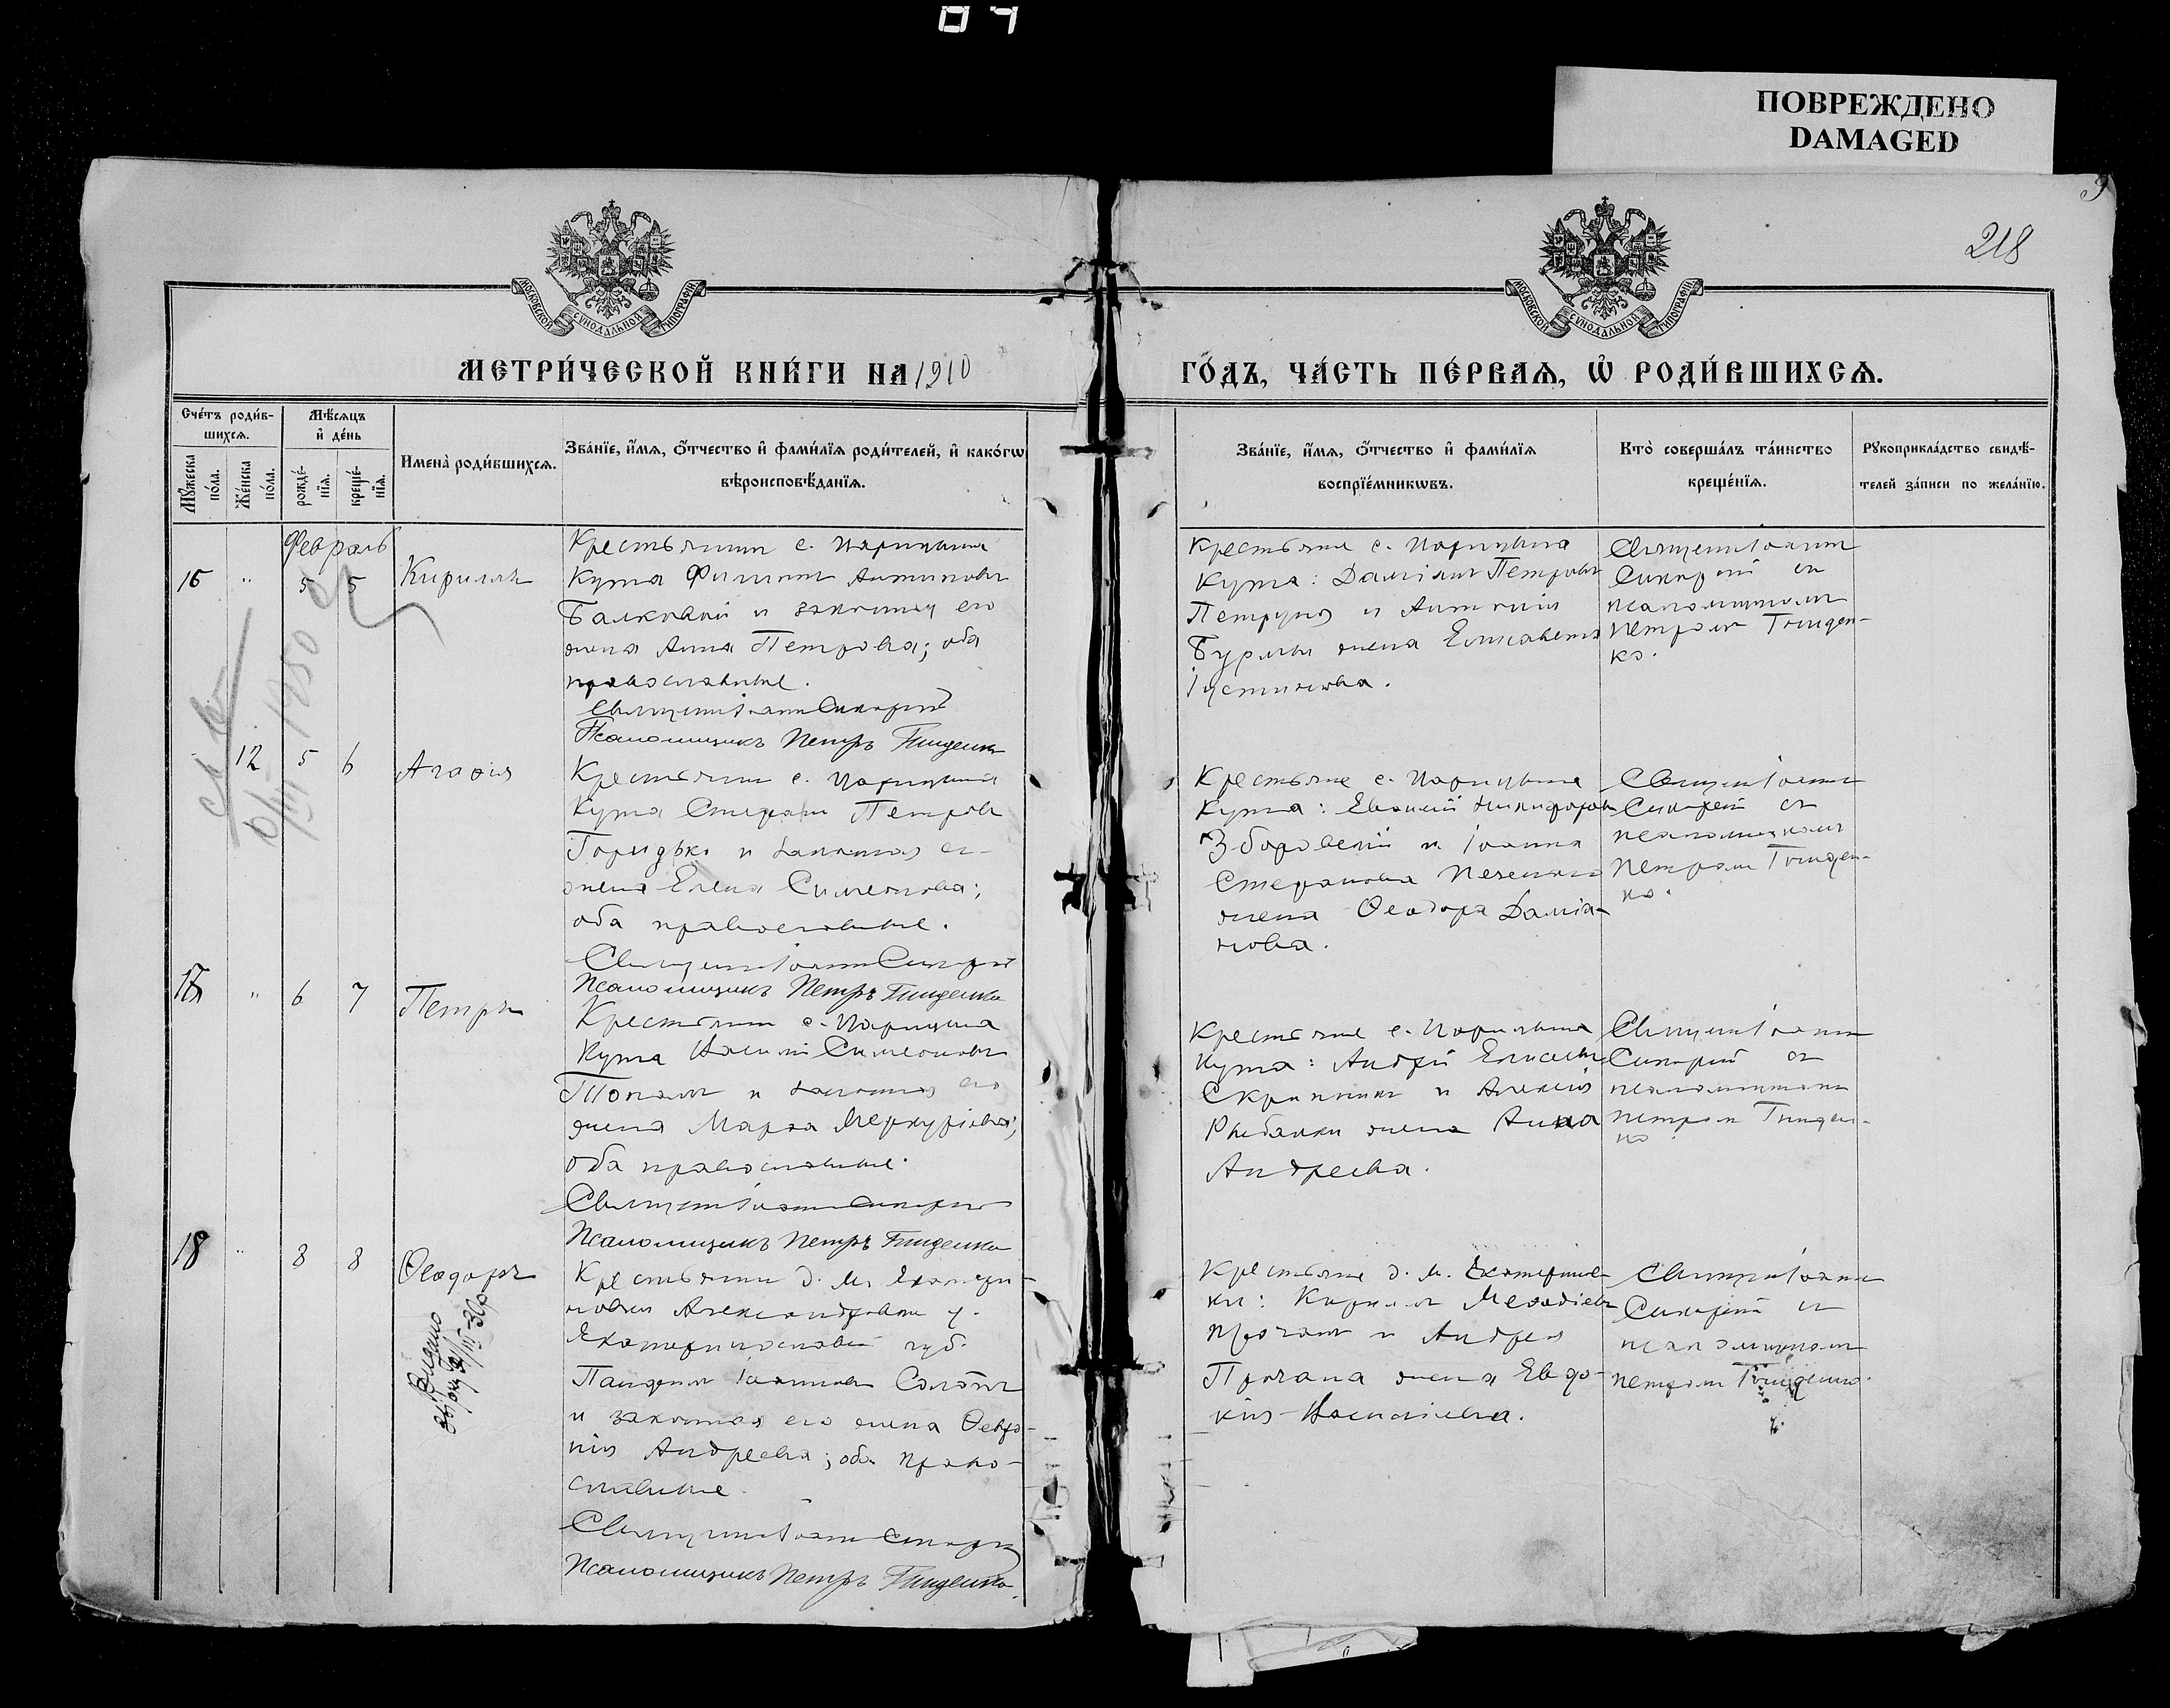 ПОВРЕЖДЕНО
DAMAGED
218
МОСКОВСКОЙ СѴНОДАЛЬНОЙ ТИПОГРАФІИ
МОСКОВСКОЙ СѴНОДАЛЬНОЙ ТИПОГРАФІИ
МЕТРИ́ЧЕСКОЙ КНИ́ГИ НА 1910
ГО́ДЪ, ЧА́СТЬ ПЕ́РВАѦ, Ѽ РОДИ́ВШИХСѦ.
Сче́тъ роди́в-
шихсѧ.
Мꙋ́жеска по́ла.
Же́нска по́ла.
Мѣ́сѧцъ
и҆ де́нь
рожде́-нїѧ.
креще́-нїѧ.
Имена̀ роди́вшихсѧ.
Зва́нїе, и҆́мѧ, ѻ҆́тчество и҆ фами́лїѧ роди́телей, и҆ како́гѡ
вѣроисповѣ́данїѧ.
Зва́нїе, и҆́мѧ, ѻ҆́тчество и҆ фами́лїѧ
воспрїе́мникѡвъ.
Кто̀ соверша́лъ та́инство
креще́нїѧ.
Рꙋкоприкла́дство свидѣ́-
телей за́писи по жела́нїю.
Февраль
16 " 5 5 Кириллъ
Крестьянинъ с. Царицына
Кута Филиппъ Антиповъ
Балковый и законная его
жена Анна Петрова; оба
православные.
Священникъ Іоаннъ
Псаломщикъ Петръ Гниденко
Крестьяне с. Царицына
Кута: Даміанъ Петровъ
Петруня и Антонія
Бурмы жена Елисавета
Іустинова.
Священ. Іоаннъ
съ
псаломщикомъ
Петромъ Гниден-
ко.
12 5 6 Агафія
Крестьянинъ с. Царицына
Кута Стефанъ Петровъ
Горидько и законная его
жена Елена Симеонова;
оба православные.
Священ. Іоаннъ
Псаломщикъ Петръ Гниденко
Крестьяне с. Царицына
Кута: Евѳимій Никифоровъ
Збаровскій и Іоанна
Стефанова
жена Ѳеодора Даміа-
нова.
Священ. Іоаннъ
съ
псаломщикомъ
Петромъ Гниден-
ко.
17 " 6 7 Петръ
Крестьянинъ с. Царицына
Кута Василій Симеоновъ
Тополь и законная его
жена Марѳа Меркуріева;
оба православные.
Священ. Іоаннъ
Псаломщикъ Петръ Гниденко
Крестьяне с. Царицына
Кута: Андрей Елисеевъ
Скрипникъ и Алексія
Рыбалки жена Анна
Андреева.
Священ. Іоаннъ
съ
псаломщикомъ
Петромъ Гниден-
ко
18 " 8 8 Ѳеодоръ
Выдано
Крестьянинъ д. М. Екатери-
новки Александровск. у.
Екатеринославской губ.
Іоанновъ
и законная его жена Февро-
нія Андреева; оба право-
славные.
Священ. Іоаннъ
Псаломщикъ Петръ Гниденко.
Крестьяне д. М. Екатеринов-
ки: Кириллъ Меѳодіевъ
и Андрея
Прочана жена Евдо-
кія Васильева.
Священ. Іоаннъ
съ
псаломщикомъ
Петромъ Гниденко.